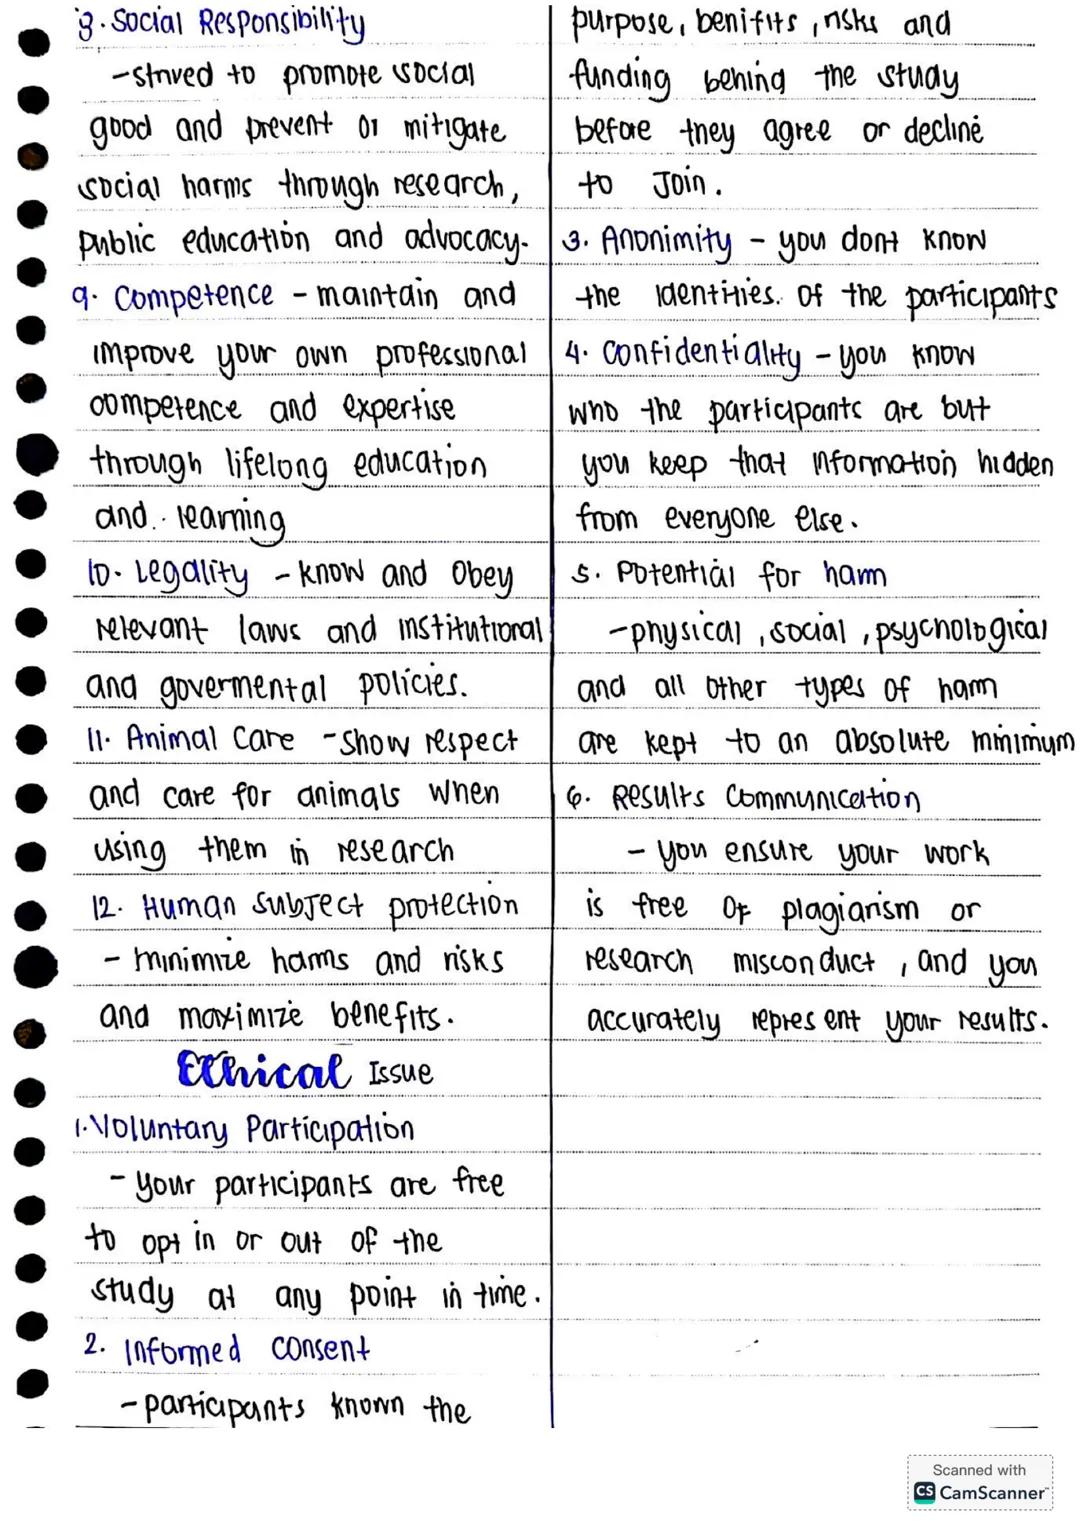 8. Social Responsibility
- strived to promote social
good and prevent or mitigate
social harms through research,
public education and advocacy.
9. Competence - maintain and
improve your own professional
competence and expertise
through lifelong education
and learning
10. Legality - know and Obey
relevant laws and institutional
and govermental policies.
11. Animal Care - Show respect
and care for animals when
using them in research
12. Human Subject protection
- minimize harms and risks
and maximize benefits.
Ethical Issue
1. Voluntary Participation
- Your participants are free
to opt in or out of the
study at any point in time.
2. Informed consent
- participants known the
purpose, benifits, risks and
funding behing the study
before they agree or decline
to Join.
3. Anonimity - you dont know
the identities. of the participants
4. Confidentiality - you know
who the participants are but
you keep that information hidden
from everyone else.
5. Potential for harm
- physical, social, psychological
and all other types of harm
are kept to an absolute minimum
6. Results Communication
- you ensure your work
is free of plagiarism or
research misconduct, and you
accurately represent your results.
Scanned with
CS CamScanner